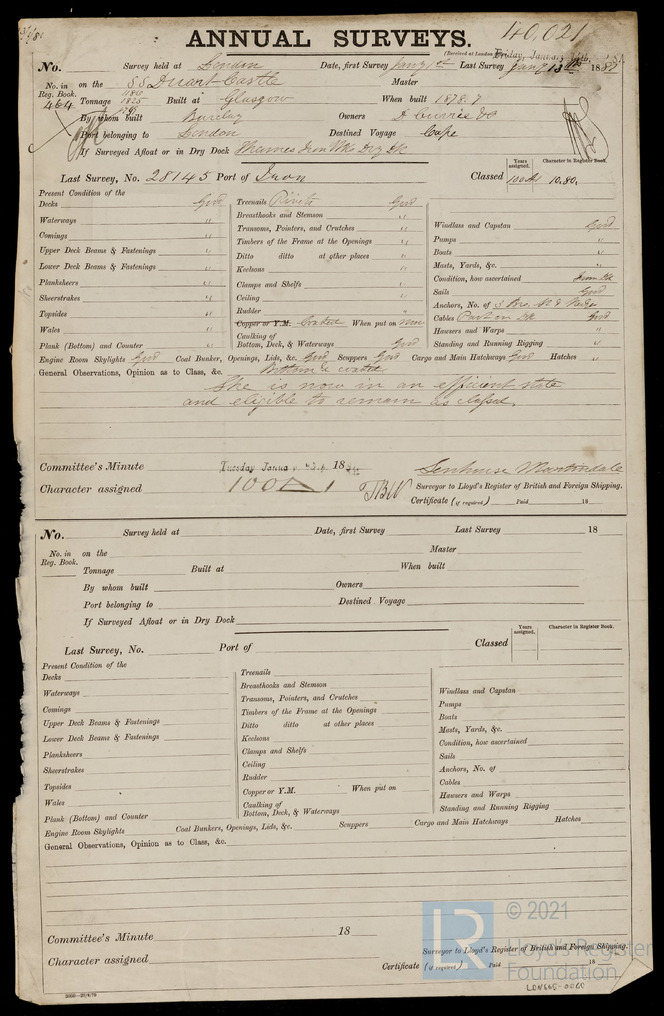 40,021
ANNUAL SURVEYS.
(Received at London Friday, January
No. Survey held at London Date, first Survey Jany 1st Last Survey Jany 13th 1881
No. in Reg. Book. 464 on the SS Duart Castle Master
Tonnage 1180 1825 Built at Glasgow When built 1878.7
By whom built Barclay Owners D Currie & Co
Port belonging to London Destined Voyage Cape
If Surveyed Afloat or in Dry Dock Thames Iron Wks Dry Dk
Last Survey, No. 28145 Port of Iron Classed Years assigned. 100A1 Character in Register Book. 10.80.
Present Condition of the
Decks Good Treenails Rivets Good
Waterways " Breasthooks and Stemson " Windlass and Capstan Good
Comings " Transoms, Pointers, and Crutches " Pumps "
Upper Deck Beams & Fastenings " Timbers of the Frame at the Openings " Boats "
Lower Deck Beams & Fastenings " Ditto ditto at other places " Masts, Yards, &c. "
Planksheers " Keelsons " Condition, how ascertained from Dk
Sheerstrakes " Clamps and Shelfs " Sails Good
Topsides " Ceiling " Anchors, No. of
Wales " Rudder " Cables Part on Dk Good
Copper or Y.M. Coated When put on now Hawsers and Warps "
Plank (Bottom) and Counter " Caulking of Bottom, Deck, & Waterways Good Standing and Running Rigging "
Engine Room Skylights Good Coal Bunker, Openings, Lids, &c. Good Scuppers Good Cargo and Main Hatchways Good Hatches "
General Observations, Opinion as to Class, &c. Bottom coated
She is now in an efficient state
and eligible to remain as classed.
Committee's Minute Tuesday January 18
Character assigned 100A1 Surveyor to Lloyd's Register of British and Foreign Shipping.
Certificate (if required) Paid 18
No. Survey held at Date, first Survey Last Survey 18
No. in Reg. Book. on the Master
Tonnage Built at When built
By whom built Owners
Port belonging to Destined Voyage
If Surveyed Afloat or in Dry Dock
Last Survey, No. Port of Classed Years assigned. Character in Register Book.
Present Condition of the
Decks Treenails
Waterways Breasthooks and Stemson Windlass and Capstan
Comings Transoms, Pointers, and Crutches Pumps
Upper Deck Beams & Fastenings Timbers of the Frame at the Openings Boats
Lower Deck Beams & Fastenings Ditto ditto at other places Masts, Yards, &c.
Planksheers Keelsons Condition, how ascertained
Sheerstrakes Clamps and Shelfs Sails
Topsides Ceiling Anchors, No. of
Wales Rudder Cables
Copper or Y.M. When put on Hawsers and Warps
Plank (Bottom) and Counter Caulking of Bottom, Deck, & Waterways Standing and Running Rigging
Engine Room Skylights Coal Bunkers, Openings, Lids, &c. Scuppers Cargo and Main Hatchways Hatches
General Observations, Opinion as to Class, &c.
Committee's Minute 18
Character assigned Surveyor to Lloyd's Register of British and Foreign Shipping.
Certificate (if required) Paid 18
© 2021
LR Lloyd's Register
Foundation
LON665-0060